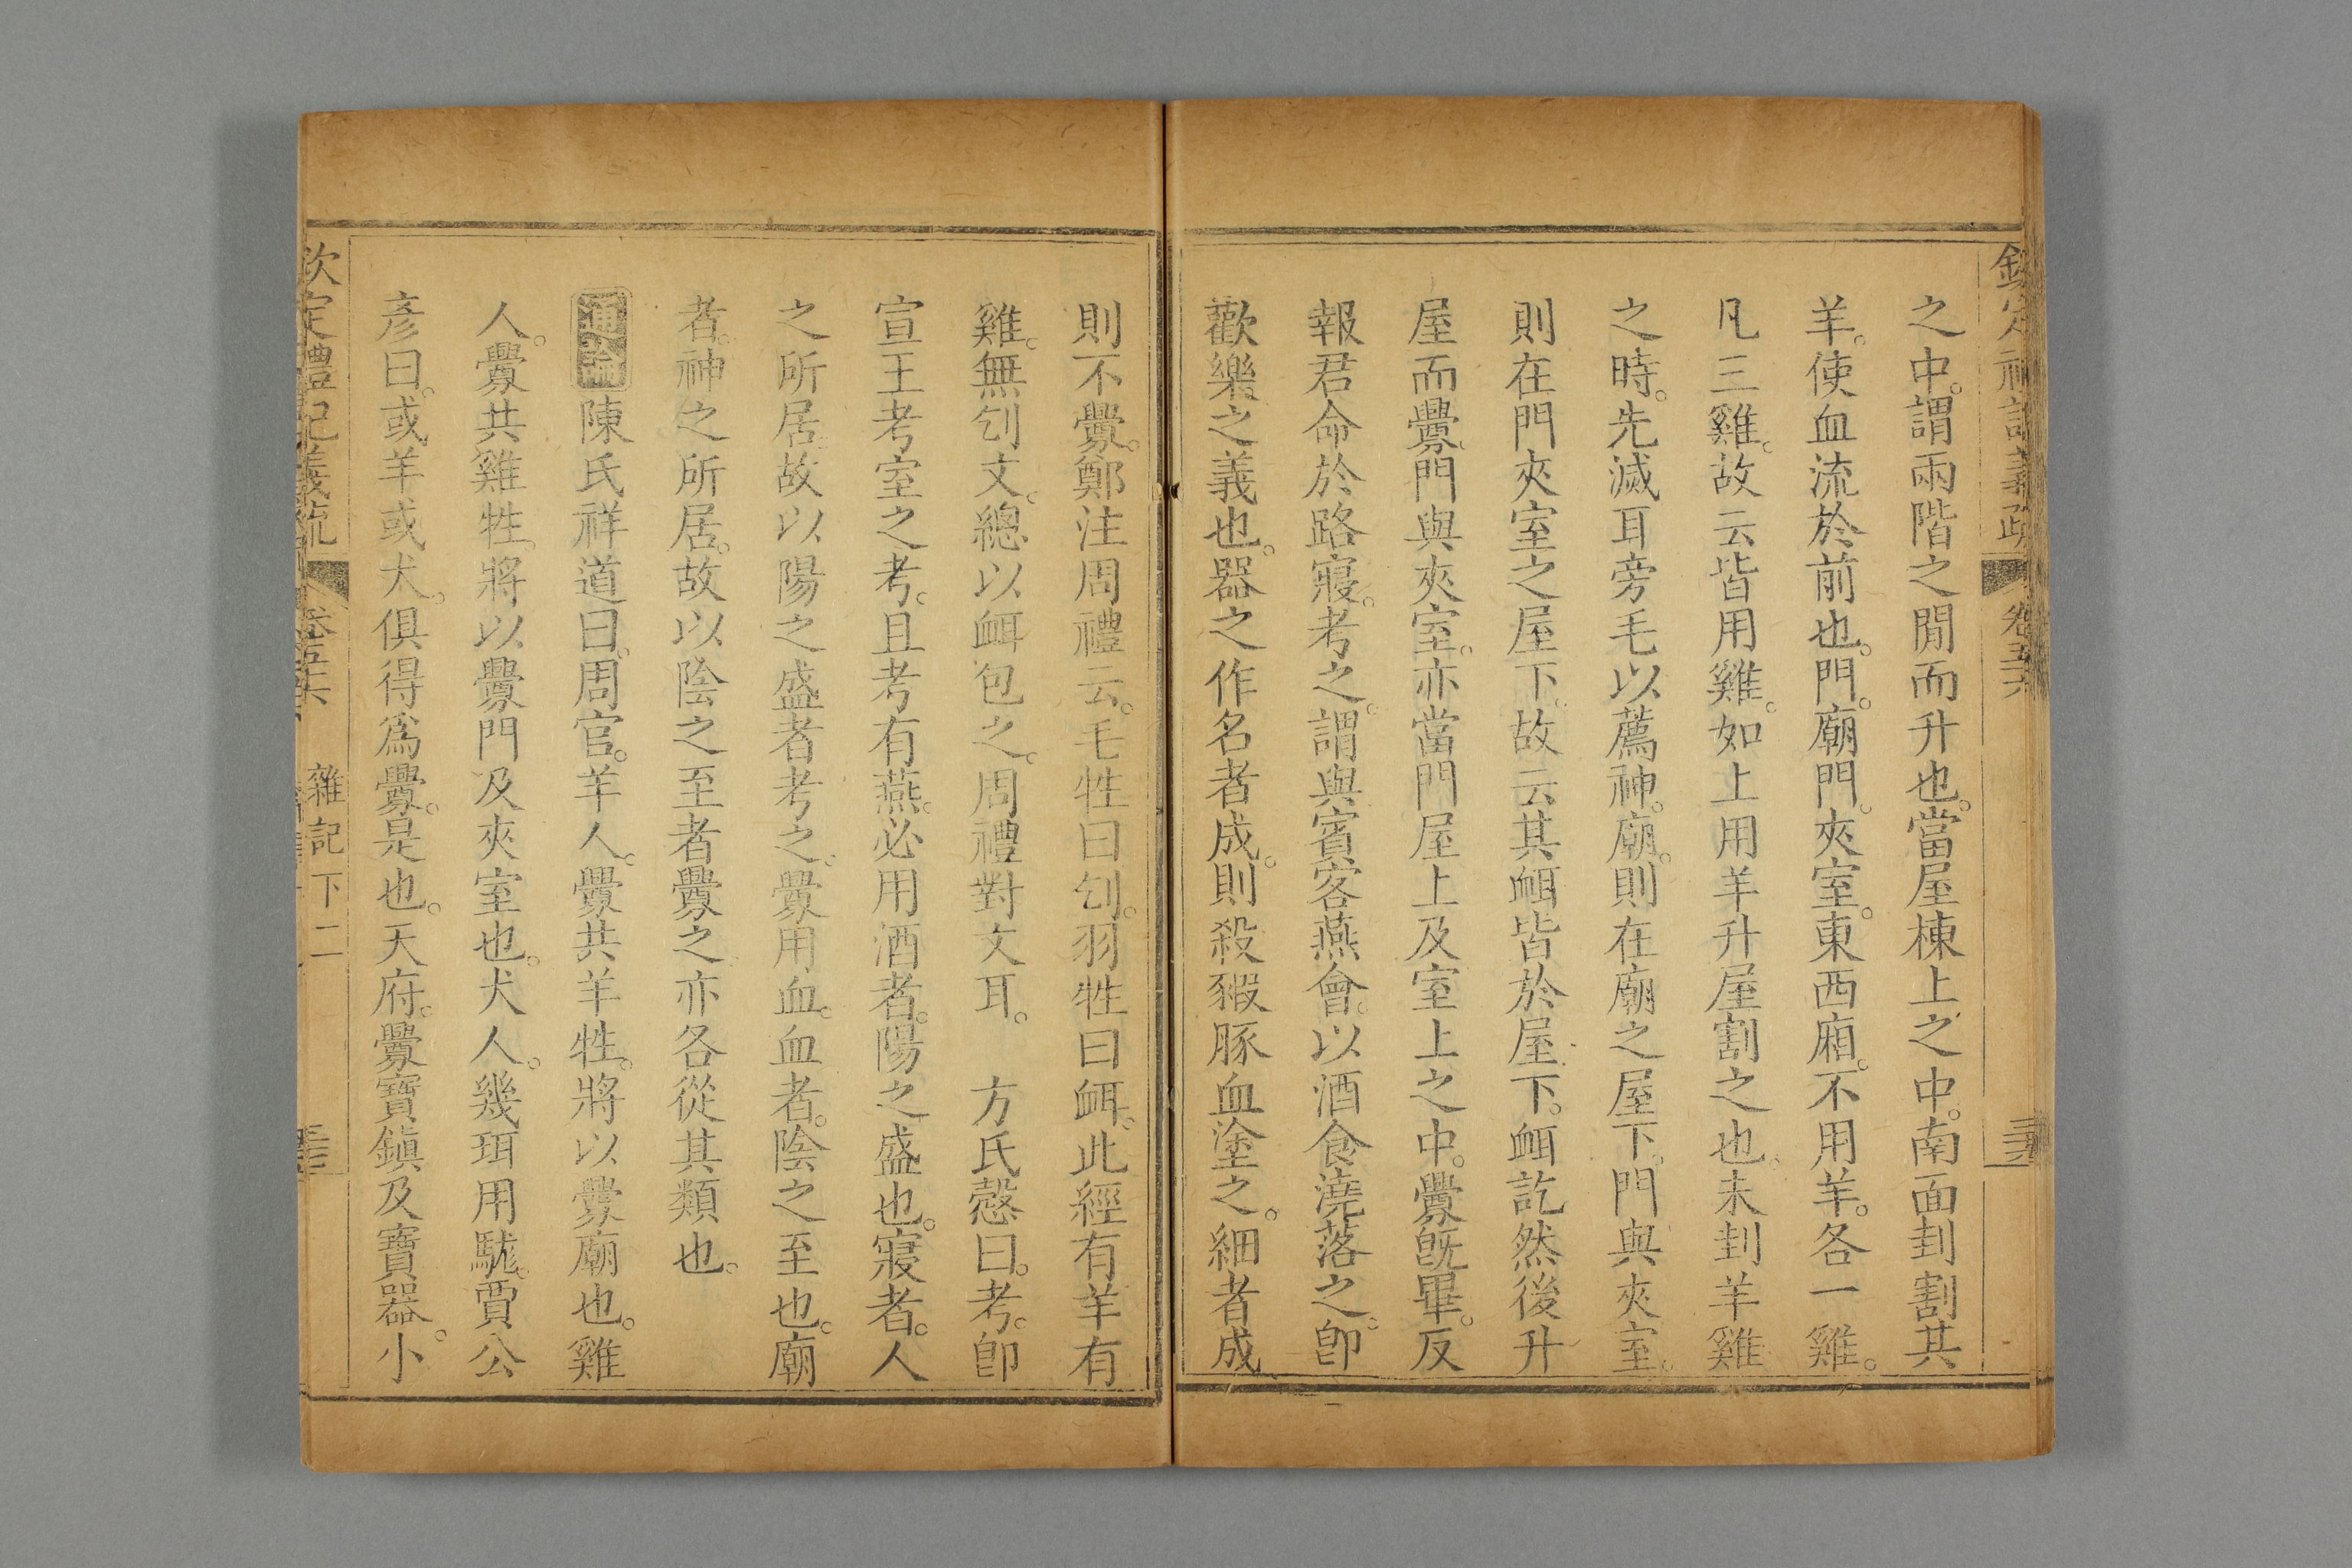 之中。謂兩階之閒而升也。當屋棟上之中。南面刲割其
羊。使血流於前也。門。廟門。夾室。東西廂。不用羊。各一雞。
凡三雞。故云皆用雞。如上用羊升屋割之也。未刲羊雞
之時。先滅耳旁毛以薦神。廟。則在廟之屋下。門與夾室。
則在門夾室之屋下。故云其衈皆於屋下。衈訖然後升
屋而釁。門與夾室。亦當門屋上及室上之中。釁旣畢。反
報君命於路寢。考之。謂與賓客燕會。以酒食澆落之。卽
歡樂之義也。器之作名者成。則殺豭豚血塗之。細者成。
則不釁。鄭注周禮云。毛牲曰刉。羽牲曰衈。此經有羊有
雞。無刉文。總以衈包之。周禮對文耳。　方氏慤曰。考。卽
宣王考室之考。且考有燕。必用酒者。陽之盛也。寢者。人
之所居。故以陽之盛者考之。釁用血。血者。陰之至也。廟
者。神之所居。故以陰之至者釁之亦各從其類也。
通論陳氏祥道曰。周官。羊人。釁共羊牲。將以釁廟也。雞
人。釁共雞牲。將以釁門及夾室也。犬人。幾珥用駹。賈公
彥曰。或羊或犬。俱得爲釁。是也。天府。釁寶鎮及寶器。小
欽定禮記義疏 卷五十六 雜記下二